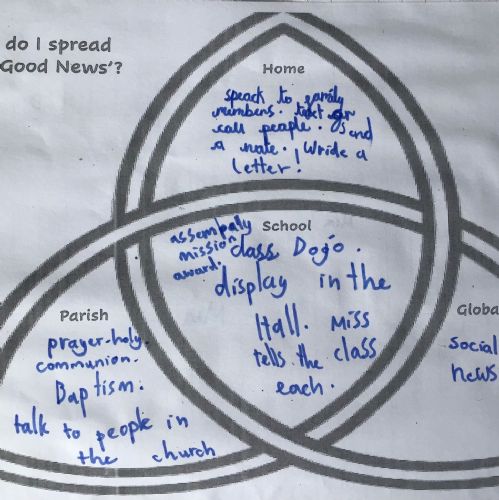 do I spread
Good News'?
Home
speack to family
members. text or
call people. Send
a note. Write a
letter!
School
assembally
mission
award.
class Dojo.
display in the
Hall. Miss
tells the class
each.
Parish
prayer-holy
communion.
Baptism.
talk to people in
the church
Globa
social
news